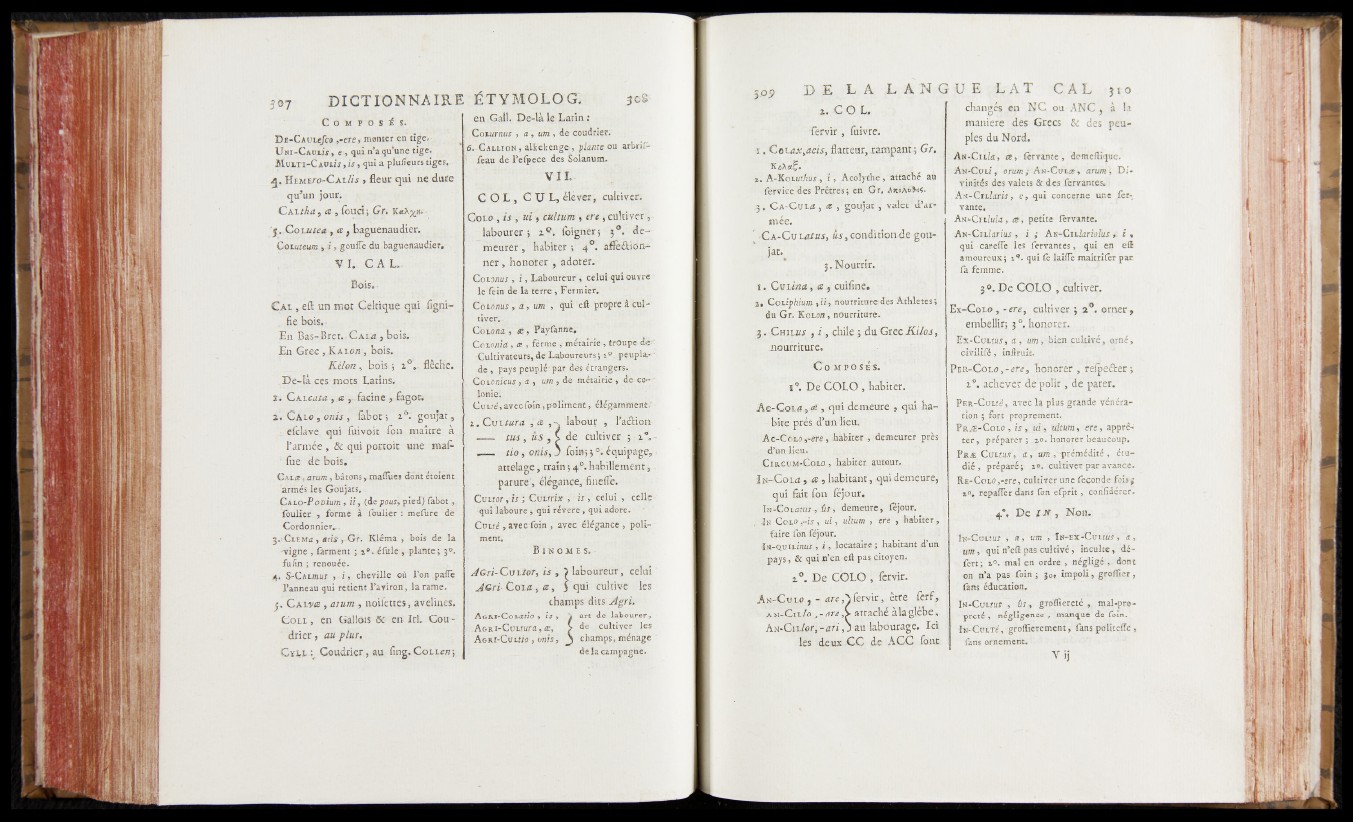 307 DICTIONNAIRE ÉTYMOLOG. 308
COMPOSÉS.
DE-CAULeſco,-ere, monter en tige.
UNI-CAULis, e, qui n'a qu'une tige.
MULTI-CAULIS, is, qui a pluſieurs tiges.
4. HEMERO-CALlis, fleur qui ne dure
qu'un jour.
CALtha, æ, ſouci; Gr. Καλχη.
5. COLutea, æ, baguenaudier.
COLuteum, i, gouſſe du baguenaudier.
VI. CAL.
Bois.
CAL, eſt un mot Celtique qui ſigni-
fie bois.
En Bas-Bret. CALa, bois.
En Grec, KALon, bois.
Kélon, bois; 2°. flèche.
De-là ces mots Latins.
1. CALcata, æ, facine, fagot.
2. CALo, onis, ſabot; 2°. goujat,
eſclave qui ſuivoit ſon maître à
l'armée, & qui portoit une maſ-
ſue de bois.
CALæ, arum, bâtons, maſſues dont étoient
armés les Goujats.
CALO-PODium, ii, (de pous, pied) ſabot,
ſoulier, forme à ſoulier: meſure de
Cordonnier.
3. CLEMa, atis, Gr. Kléma, bois de la
vigne, ſarment; 2°. éſule, plante; 3°.
fuſin; renouée.
4. S-CALmus, i, cheville où l'on paſſe
l'anneau qui retient l'aviron, la rame.
5. CALvæ, arum, noiſettes, avelines.
COLL, en Gallois & en Irl. Cou-
drier, au plur.
CYLL: Coudrier, au ſing. COLLen;
en Gall. De-là le Latin:
COLurnus, a, um, de coudrier.
6. CALLION, alkekenge, plante ou arbriſ-
ſeau de l'eſpece des Solanum.
VII.
COL, CUL, élever, cultiver.
COLO, is, ui, cultum, ere, cultiver,
labourer; 2°. ſoigner; 3°. de-
meurer, habiter; 4°. affection-
ner, honorer, adorer.
COLonus, i, Laboureur, celui qui ouvre
le ſein de la terre, Fermier.
COLonus, a, um, qui eſt propre à cul-
tiver.
COLona, æ, Payſanne.
COLonia, æ, ferme, métairie, troupe de
Cultivateurs, de Laboureurs; 2°. peupla-
de, pays peuplé par des étrangers.
COLonicus, a, um, de métairie, de co-
lonie.
CULté, avec ſoin, poliment, élégamment.
1. CULtura, æ, labour, l'action
—— tus, ûs, de cultiver; 2°.
—— tio, onis, ſoin; 3°. équipage,
attelage, train; 4°. habillement,
parure, élégance, fineſſe.
CULtor, is; CULtrix, is, celui, celle
qui laboure, qui révere, qui adore.
CULté, avec ſoin, avec élégance, poli-
ment.
BINOMES.
AGri-CULtor, is, laboureur, celui
AGri-COLa, æ, qui cultive les
champs dits Agri.
AGRI-COLatio, is, art de labourer,
AGRI-CULtura, æ, de cultiver les
AGRI-CULtio, onis, champs, ménage
de la campagne.
309 DE LA LANGUE LAT CAL 310
2. COL.
ſervir, ſuivre.
1. COLax, acis, flatteur, rampant; Gr.
Κολαξ.
2. A-KOLuthus, i, Acolythe, attaché au
ſervice des Prêtres; en Gr.
3. CA-CULa, æ, goujat, valet d'ar-
mée.
CA-CULatus, ûs, condition de gou-
jat.
3. Nourrir.
1. CULina, æ, cuiſine.
2. COLiphium, ii, nourriture des Athletes;
du Gr. KOLon, nourriture.
3. CHILus, i, chile; du Grec Kilos,
nourriture.
COMPOSÉS.
1°. De COLO, habiter.
AC-COLa, æ, qui demeure, qui ha-
bite près d'un lieu.
AC-COLO,-ere, habiter, demeurer près
d'un lieu.
CIRCUM-COLO, habiter autour.
IN-COLa, æ, habitant, qui demeure,
qui fait ſon ſéjour.
IN-COLatus, ûs, demeure, ſéjour.
IN COLO,-is, ui, ultum, ere, habiter,
faire ſon ſéjour.
IN-QUILinus, i, locataire; habitant d'un
pays, & qui n'en eſt pas citoyen.
2°. De COLO, ſervir.
AN-CULO, - are, ſervir, être ſerf,
AN-CILlo, - are, attaché à la glébe,
AN-CILlor, - ari, au labourage. Ici
les deux CC de ACC ſont
changés en NC ou ANC, à la
maniere des Grecs & des peu-
ples du Nord.
AN-CILla, æ, ſervante, domeſtique.
AN-CULi, orum; AN-CULæ, arum, Di-
vinités des valets & des ſervantes.
AN-CILlaris, e, qui concerne une ſer-
vante.
AN-CILlula, æ, petite ſervante.
AN-CILlarius, i; AN-CILlariolus, i,
qui careſſe les ſervantes, qui en eſt
amoureux; 2°. qui ſe laiſſe maîtriſer par
ſa femme.
3°. De COLO, cultiver.
EX-COLO, - ere, cultiver; 2°. orner,
embellir; 3°. honorer.
EX-CULtus, a, um, bien cultivé, orné,
civiliſé, inſtruit.
PER-COLO, - ere, honorer, reſpecter;
2°. achever de polir, de parer.
PER-CULté, avec la plus grande vénéra-
tion; fort proprement.
PRÆ-COLO, is, ui, ultum, ere, apprê-
ter, préparer; 2°. honorer beaucoup.
PRÆ CULtus, a, um, prémédité, étu-
dié, préparé; 2°. cultiver par avance.
RE-COLO,-ere, cultiver une ſeconde fois;
2°. repaſſer dans ſon eſprit, conſidérer.
4°. De IN, Non.
IN-CULtus, a, um, IN-EX-CULtus, a,
um, qui n'eſt pas cultivé, inculte, dé-
ſert; 2°. mal en ordre, négligé, dont
on n'a pas ſoin; 3°. impoli, groſſier,
ſans éducation.
IN-CULtus, ûs, groſſiereté, mal-pro-
preté, négligence, manque de ſoin.
IN-CULTé, groſſierement, ſans politeſſe,
ſans ornement.
V ij